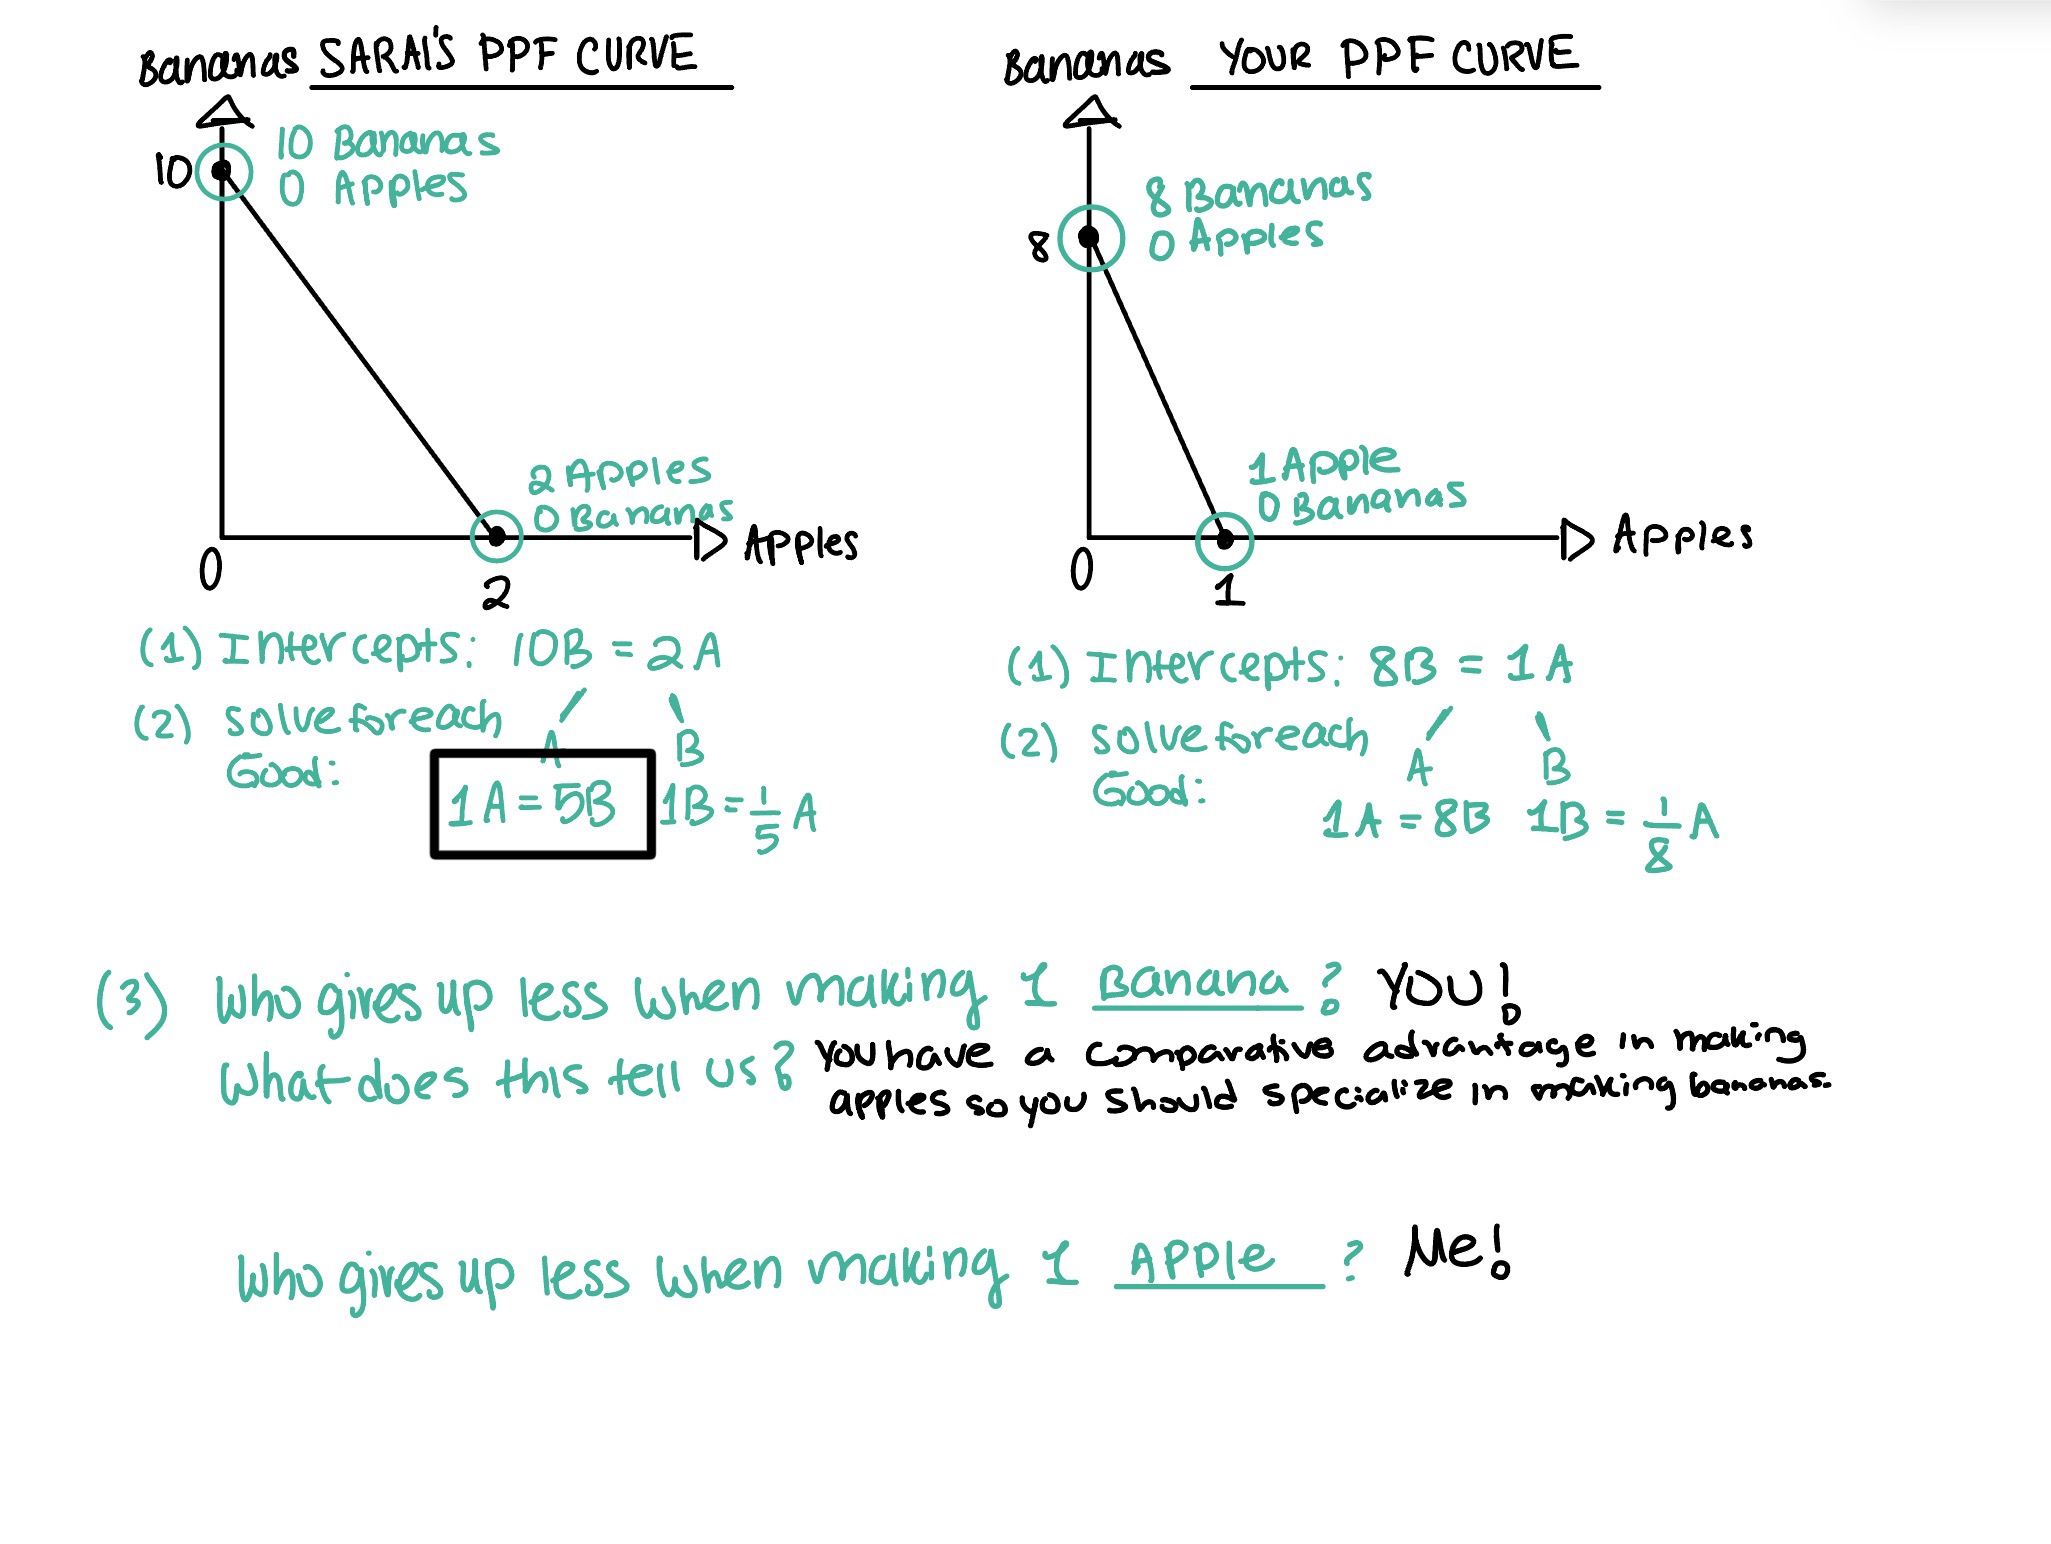 Bananas SARAI'S PPF CURVE
10 Bananas
0 Apples
10
2 Apples
0 Bananas
Apples
0
2
(1) Intercepts: 10B = 2A
(2) solve for each
Good:
A
B
1A = 5B
1B = 1/5 A
Bananas YOUR PPF CURVE
8 Bananas
0 Apples
8
1 Apple
0 Bananas
Apples
0
1
(1) Intercepts: 8B = 1A
(2) solve for each
Good:
A
B
1A = 8B
1B = 1/8 A
(3) Who gives up less when making 1 Banana? YOU!
What does this tell us? You have a comparative advantage in making
apples so you should specialize in making bananas.
Who gives up less when making 1 Apple? Me!